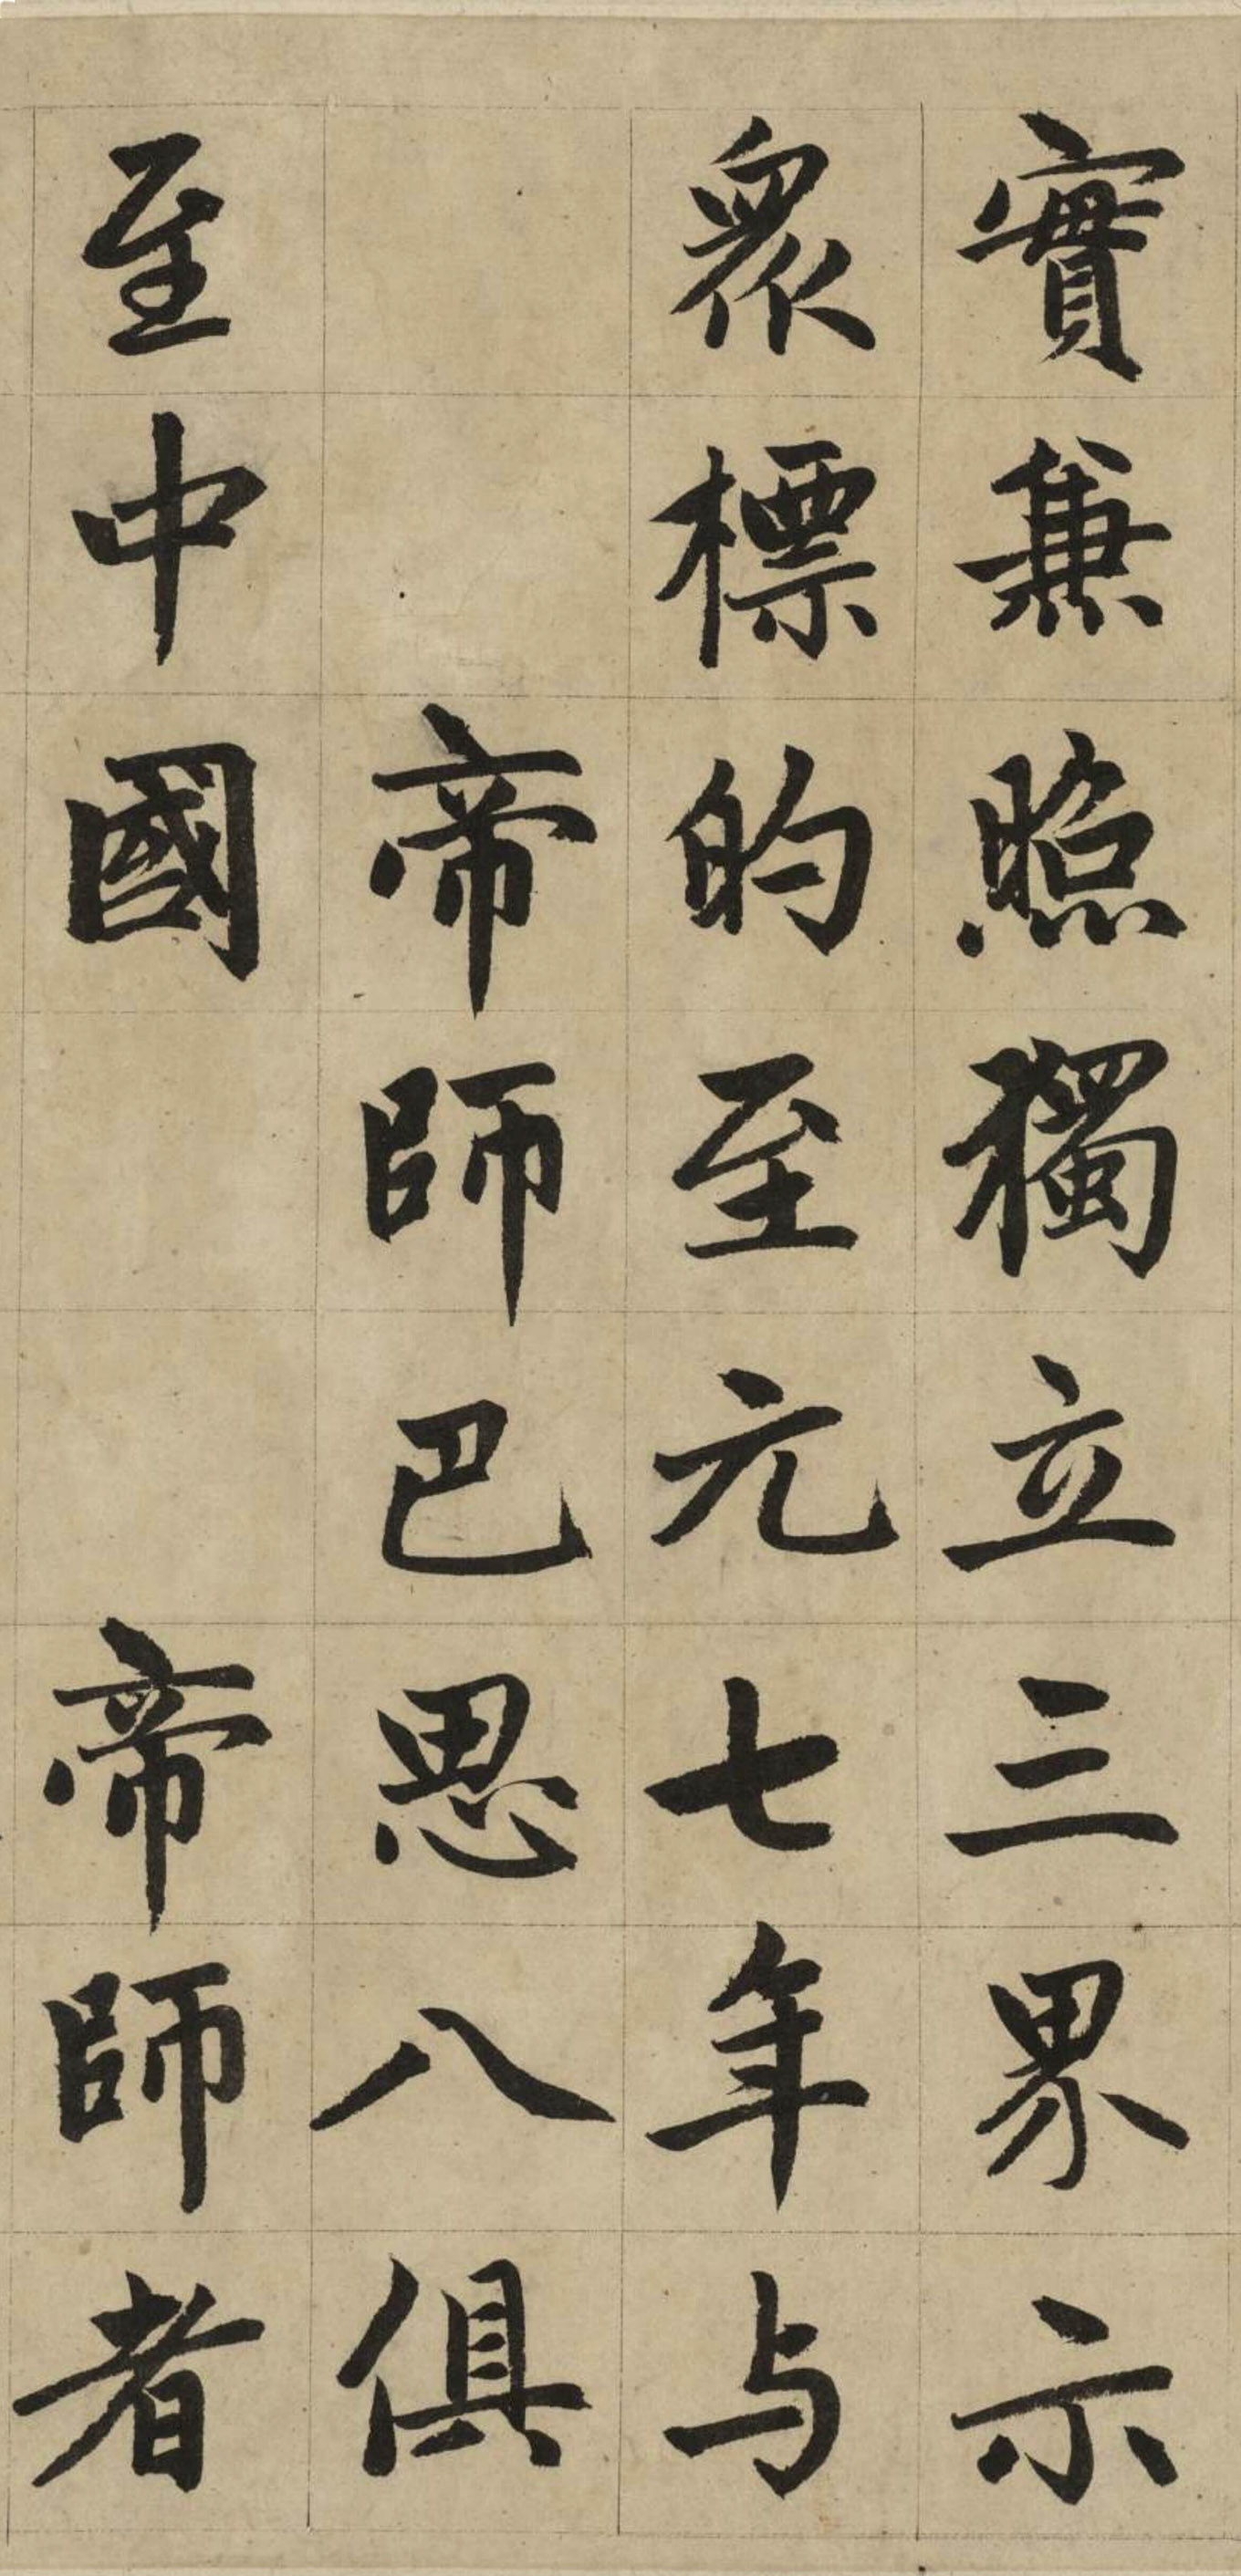 實兼照獨立三界示
衆標的至元七年与
帝師巴思八俱
至中國帝師者